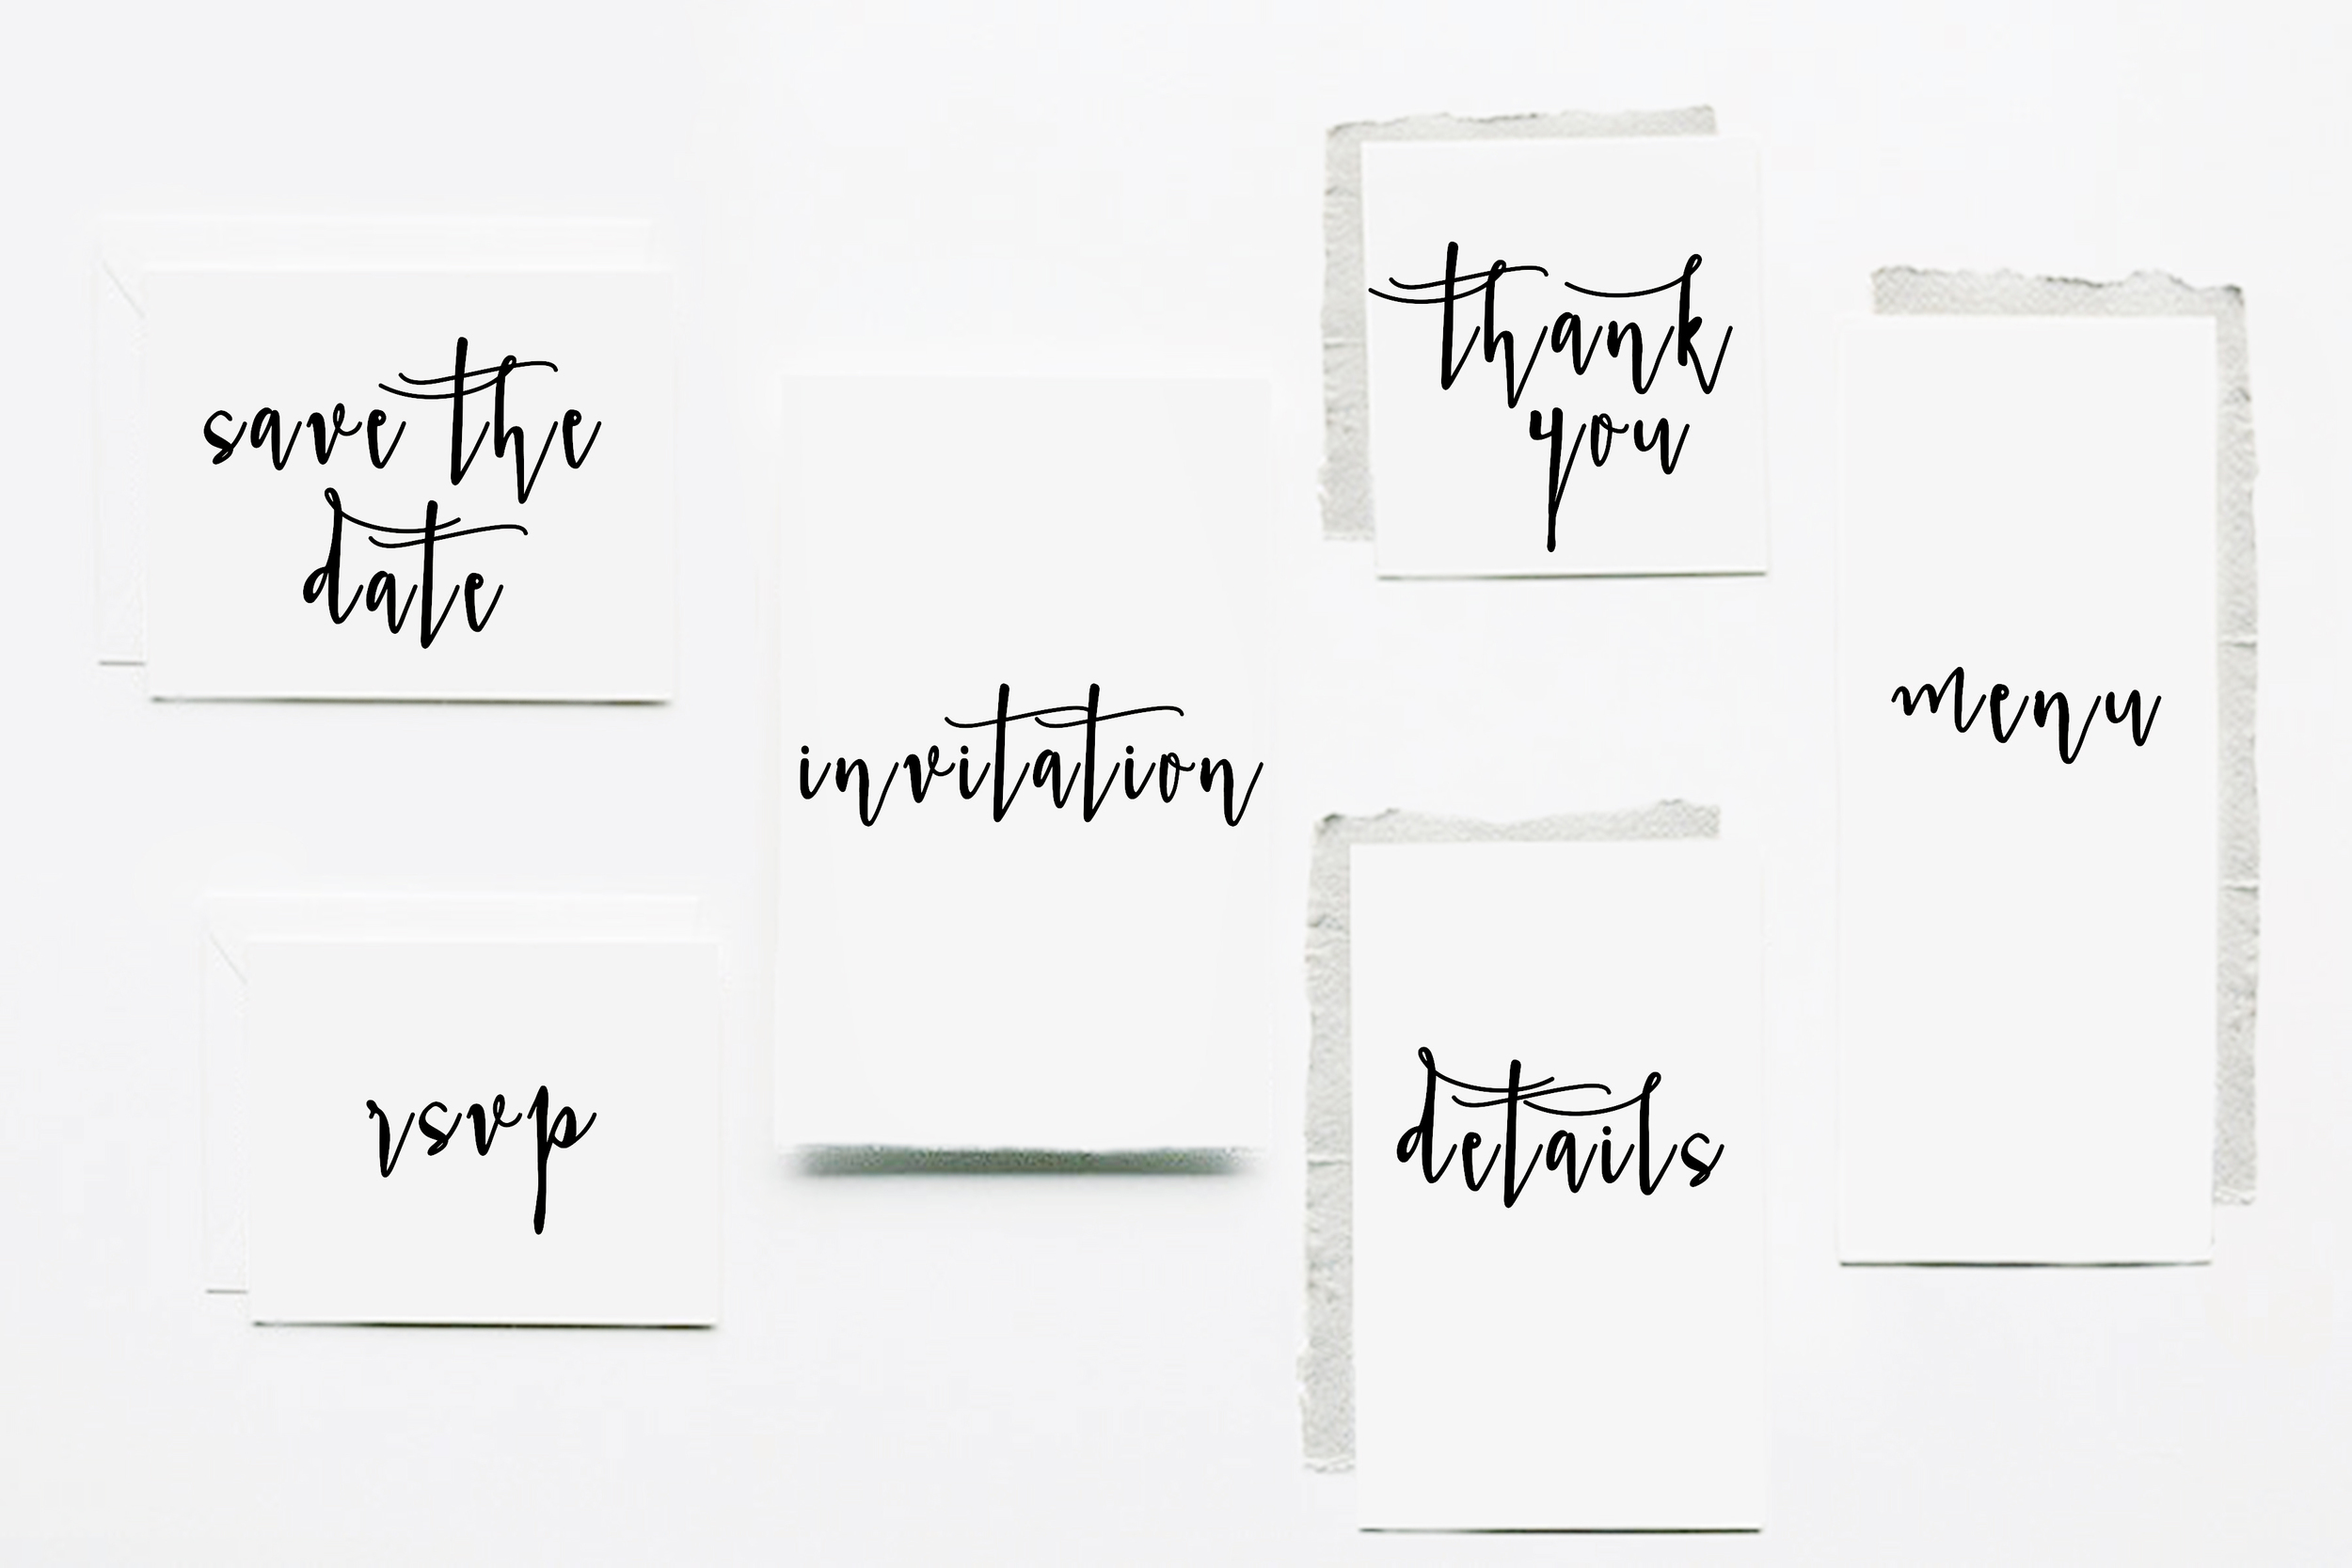 save the
date
rsvp
invitation
thank
you
details
menu